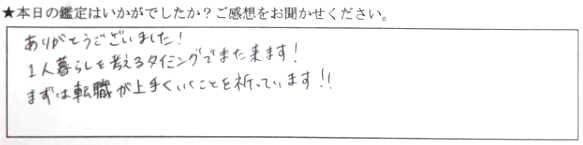 ★本日の鑑定はいかがでしたか？ご感想をお聞かせください。
ありがとうございました！
1人暮らしを考えるタイミングでまた来ます！
まずは転職が上手くいくことを祈っています！！